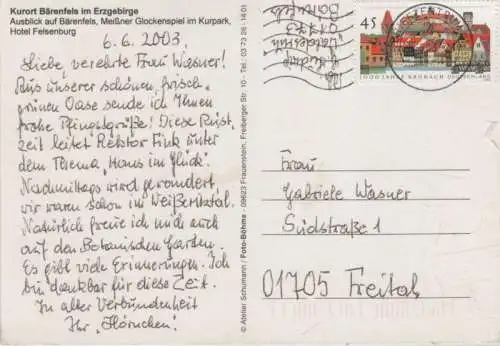 Kurort Bärenfels im Erzgebirge
Ausblick auf Bärenfels, Meißner Glockenspiel im Kurpark,
Hotel Felsenburg
6.6.2003,
Liebe, verehrte Frau Wasner!
Aus unserer schönen, frisch-
grünen Oase sende ich Ihnen
frohe Pfingstgrüße! Diese Rüst-
zeit leitet Rektor Fink unter
dem Thema „Hans im Glück“.
Nachmittags wird gewandert,
wir waren schon im Weißeritztal.
Natürlich freue ich mich auch
auf den Botanischen Garten.
Es gibt viele Erinnerungen. Ich
bin dankbar für diese Zeit.
In alter Verbundenheit
Ihr „Hörnchen“
© Atelier Schumann / Foto-Böhme - 09623 Frauenstein, Freiberger Str. 10 - Tel. 03 73 26 - 14 01
45
1000 JAHRE KRONACH DEUTSCHLAND
Frau
Gabriele Wasner
Südstraße 1
01705 Freital